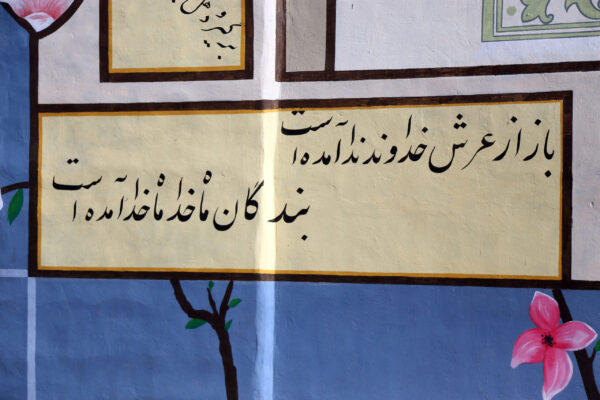 بگیر و
باز از عرش خداوند ندا آمده است
بندگان ماه خدا ماه خدا آمده است